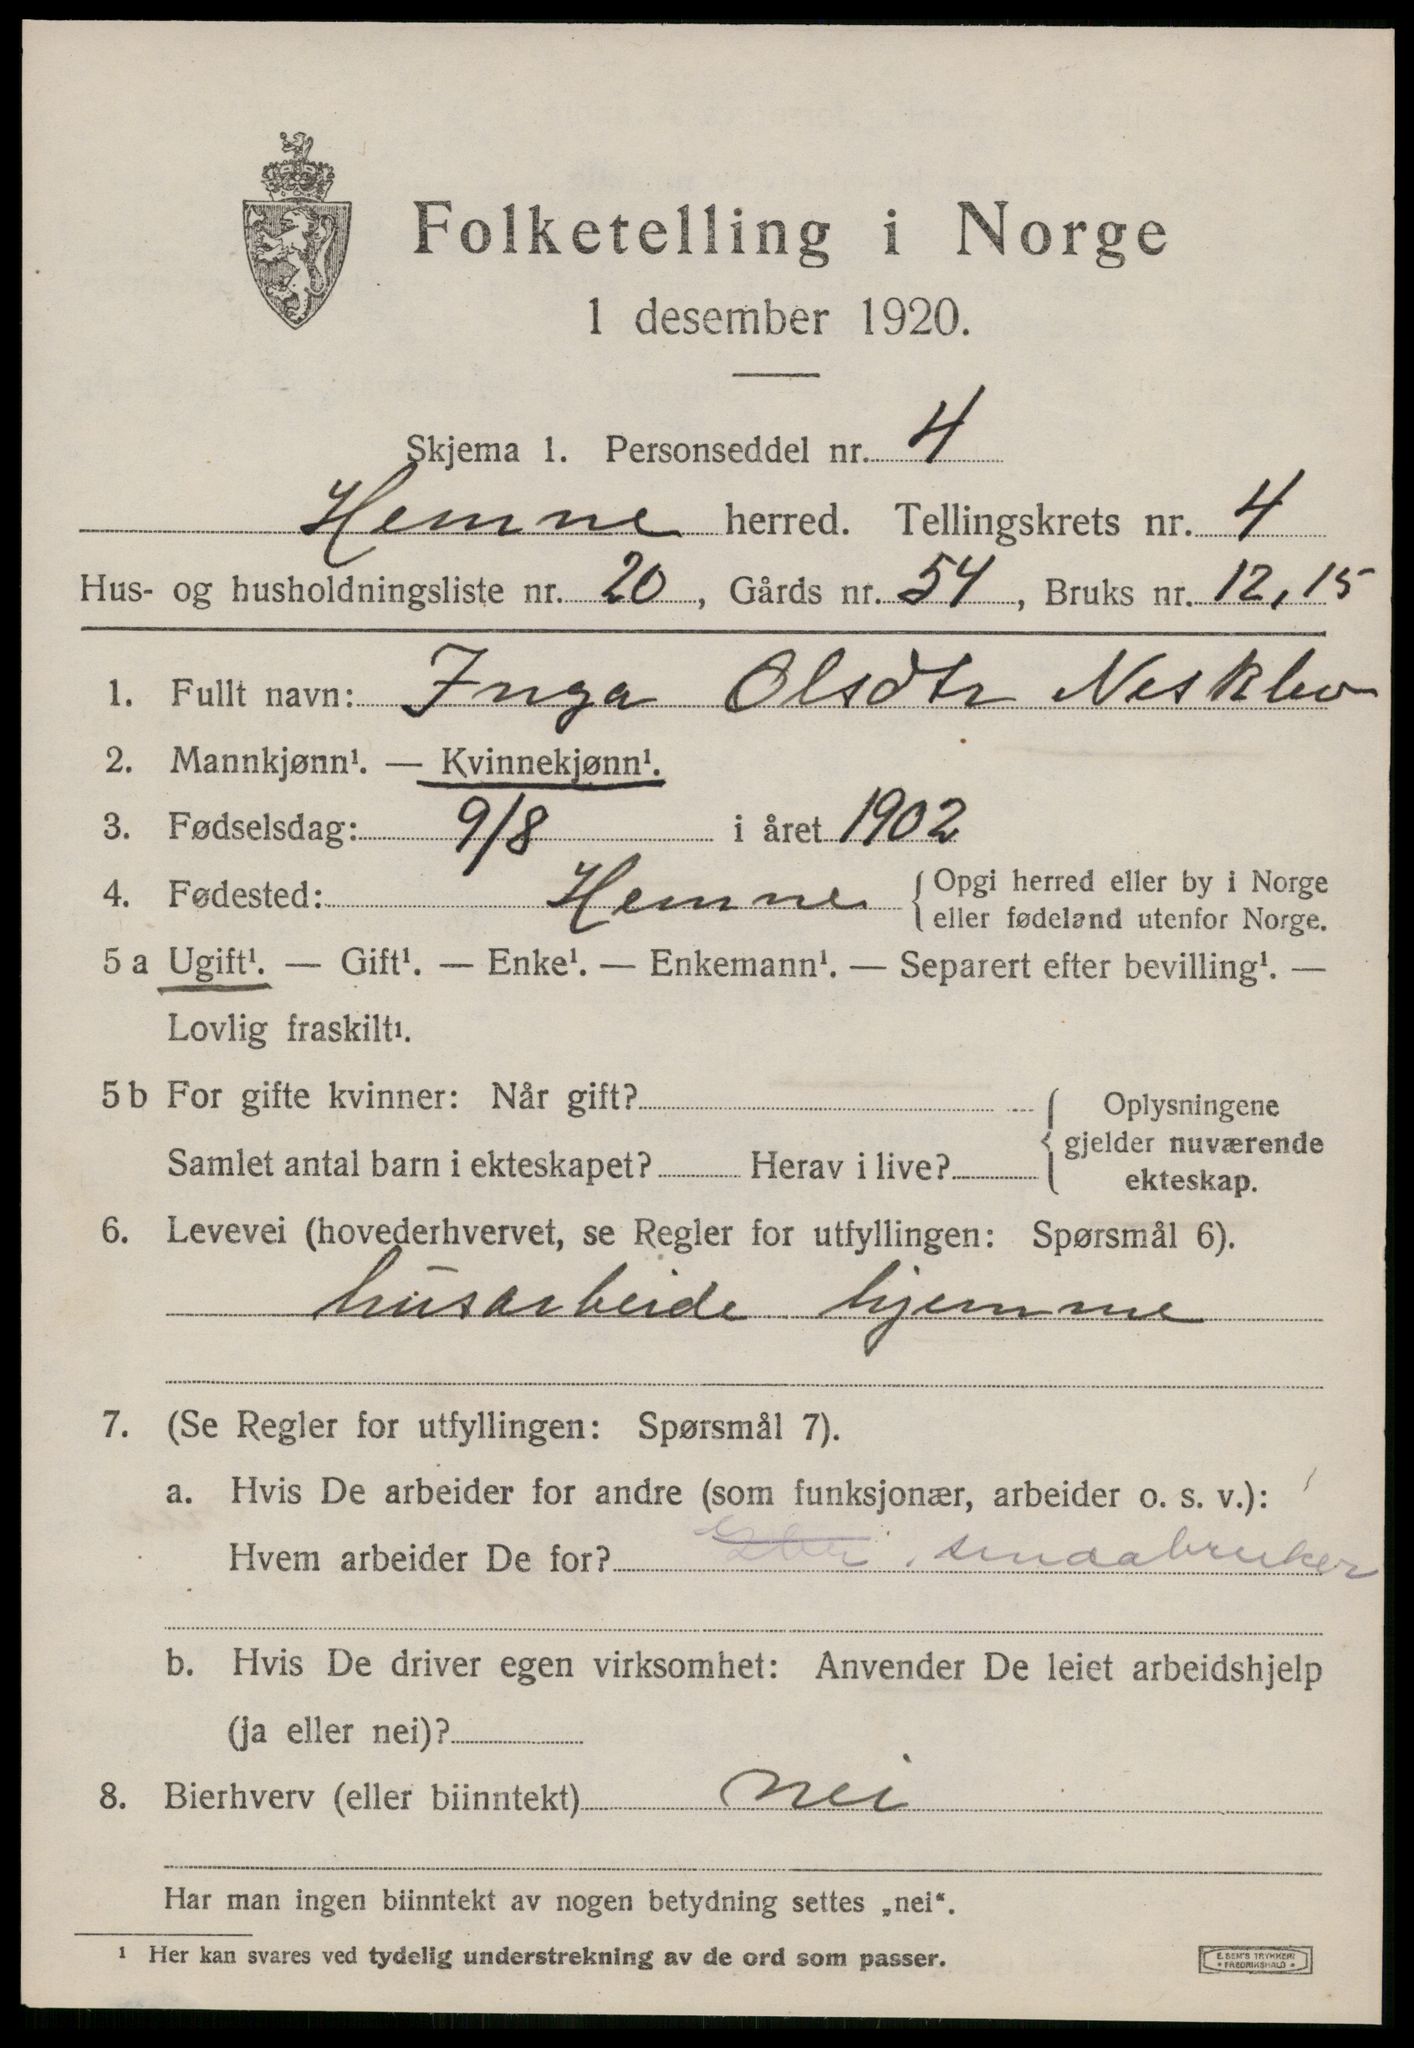 Folketelling i Norge
1 desember 1920.
Skjema 1. Personseddel nr. 4
Hemne herred. Tellingskrets nr. 4
Hus- og husholdningsliste nr. 20, Gårds nr. 54, Bruks nr. 12, 15
1. Fullt navn: Inga Olsdtr Nesklev
2. Mannkjønn¹. — Kvinnekjønn¹.
3. Fødselsdag: 9/8 i året 1902
4. Fødested: Hemne { Opgi herred eller by i Norge
eller fødeland utenfor Norge.
5 a Ugift¹. — Gift¹. — Enke¹. — Enkemann¹. — Separert efter bevilling¹. —
Lovlig fraskilt¹.
5 b For gifte kvinner: Når gift?
Samlet antal barn i ekteskapet? Herav i live?
{ Oplysningene
gjelder nuværende
ekteskap.
6. Levevei (hovederhvervet, se Regler for utfyllingen: Spørsmål 6).
husarbeide hjemme
7. (Se Regler for utfyllingen: Spørsmål 7).
a. Hvis De arbeider for andre (som funksjonær, arbeider o. s. v.):
Hvem arbeider De for? smaabruker
b. Hvis De driver egen virksomhet: Anvender De leiet arbeidshjelp
(ja eller nei)?
8. Bierhverv (eller biinntekt) nei
Har man ingen biinntekt av nogen betydning settes „nei“.
¹ Her kan svares ved tydelig understrekning av de ord som passer.
E. SEM'S TRYKKERI
• FREDRIKSHALD •